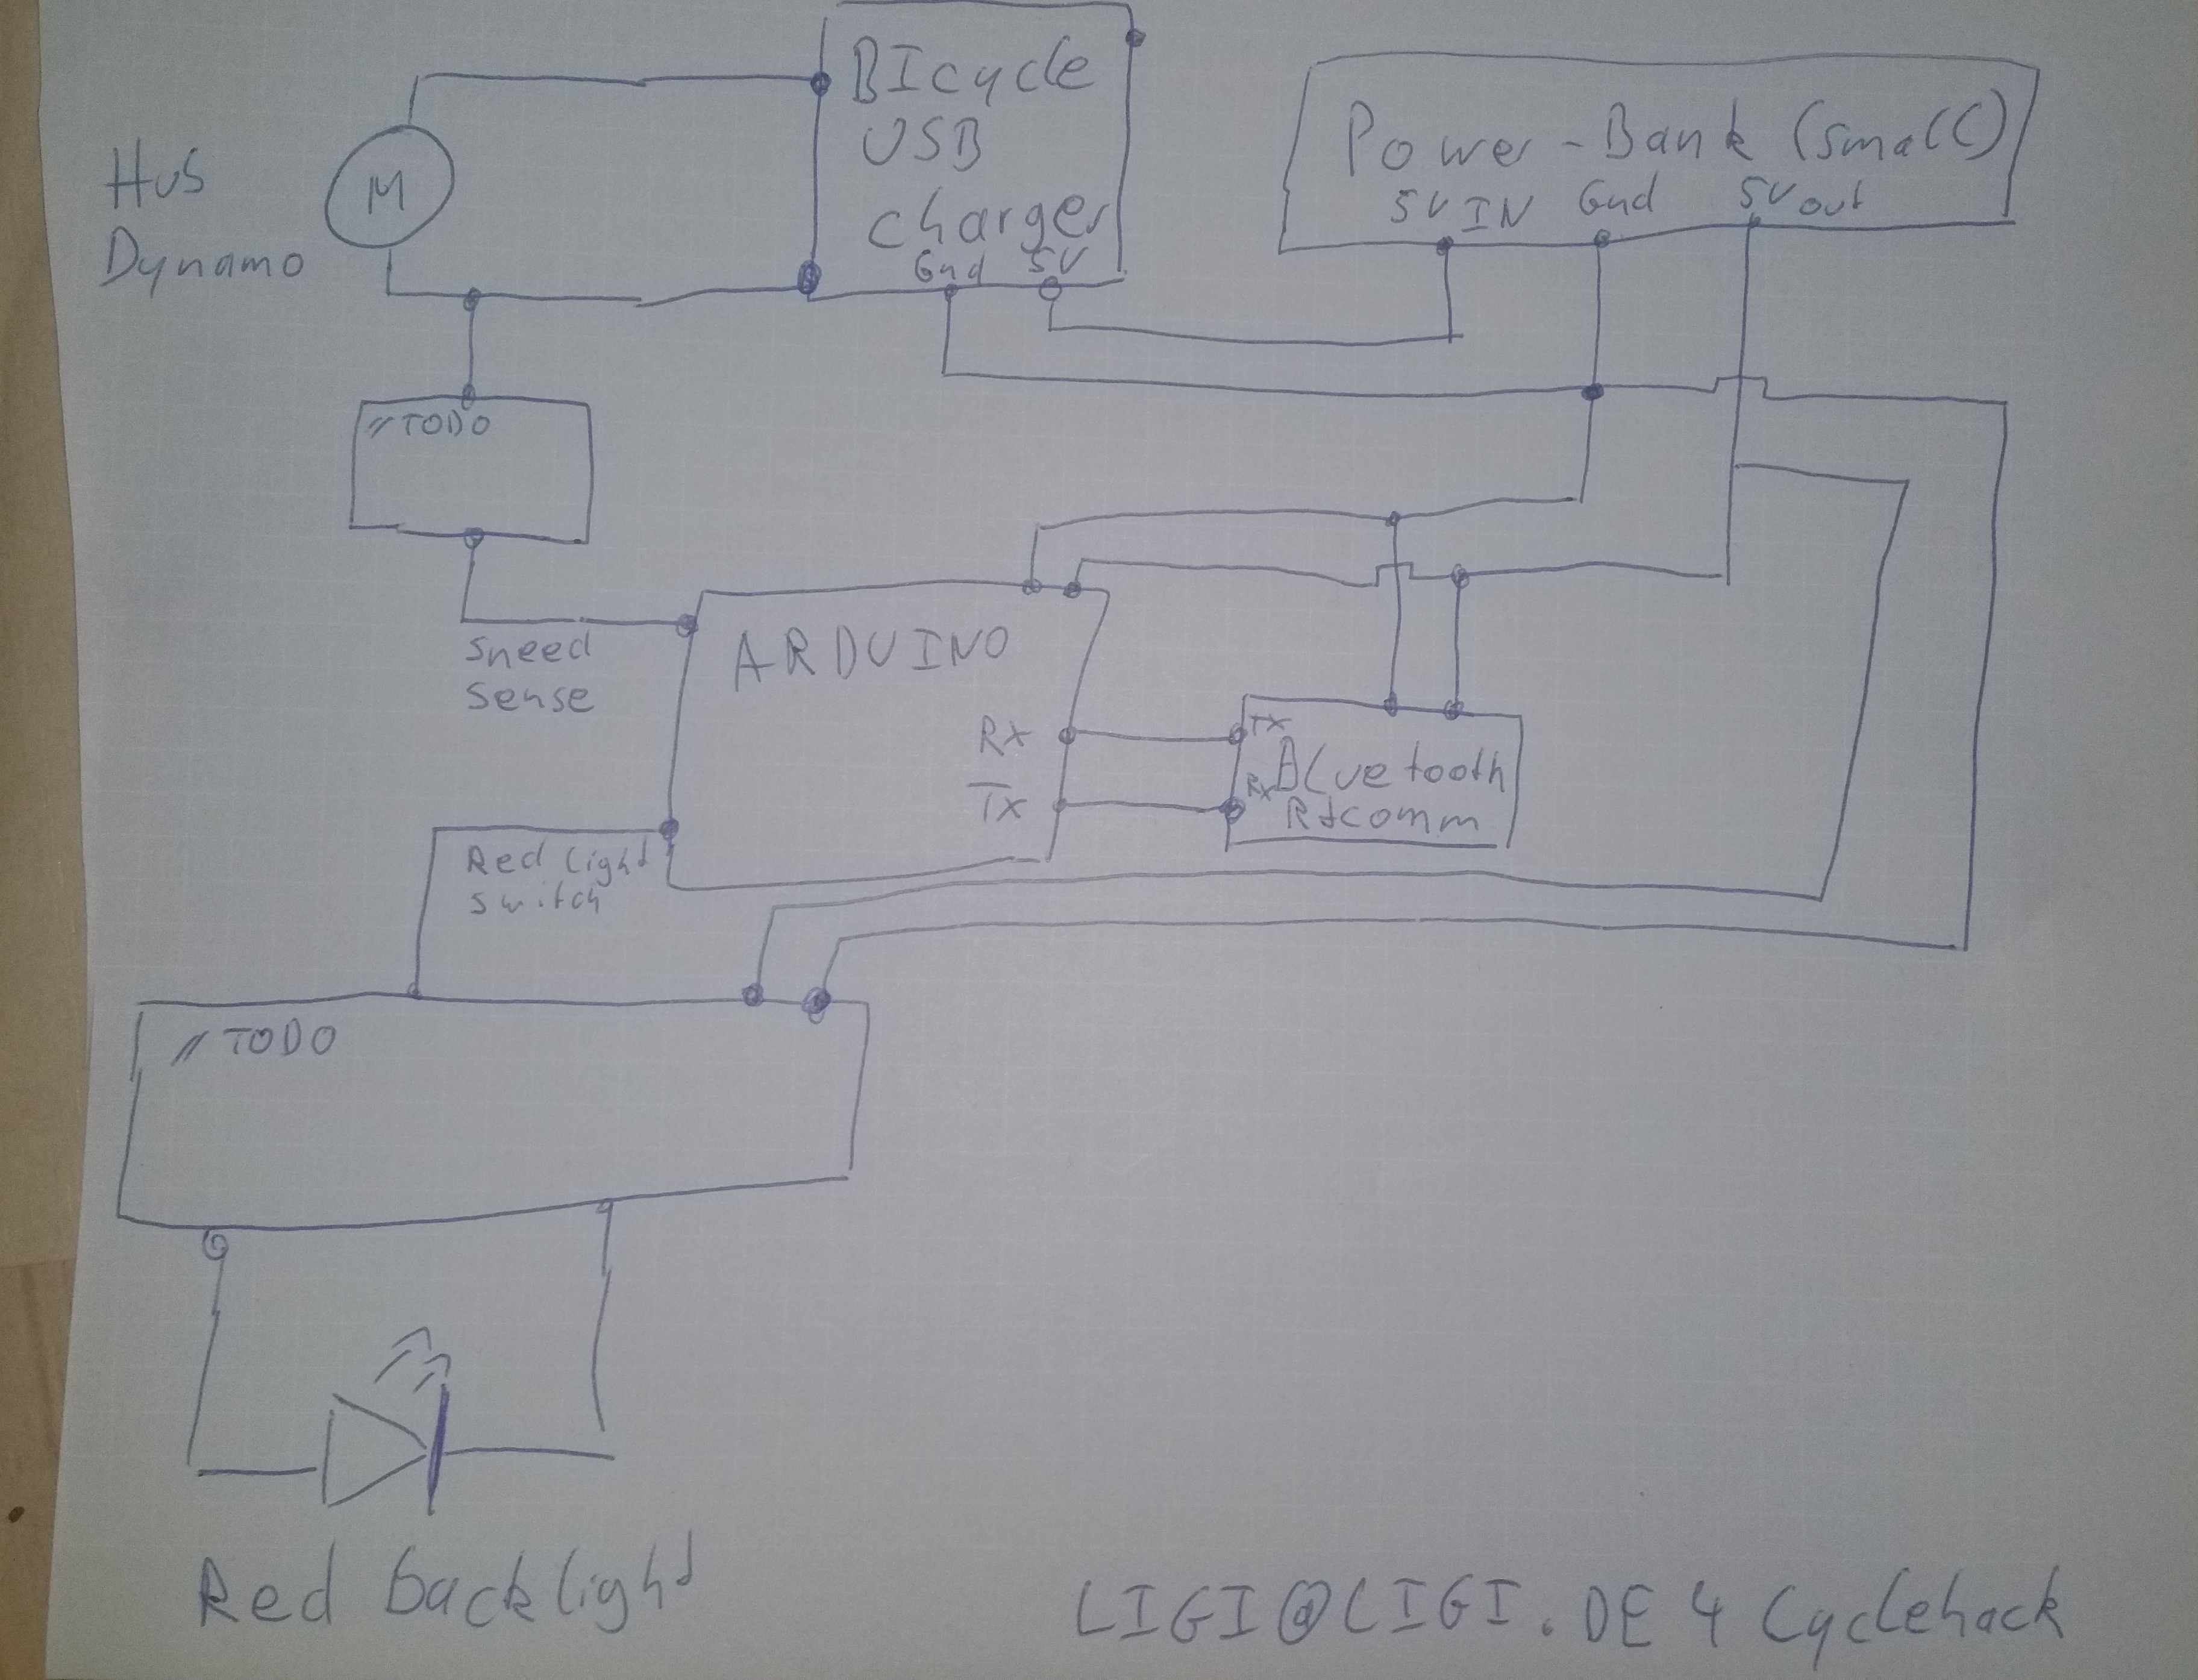 BIcycle
USB
charger
Gnd 5V
Power-Bank (small)
5V IN Gnd 5V out
Hub
Dynamo
M
// TODO
Speed
Sense
ARDUINO
Rx
Tx
TX
Rx
Bluetooth
Rfcomm
Red light
switch
// TODO
Red backlight
LIGI@LIGI.DE 4 Cyclehack